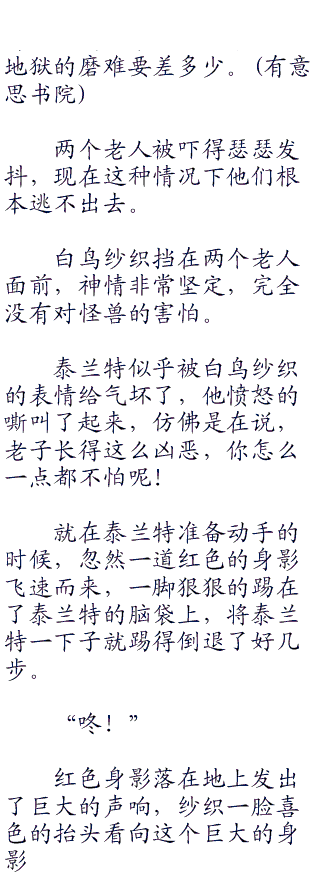 地狱的磨难要差多少。(有意
思书院)
两个老人被吓得瑟瑟发
抖，现在这种情况下他们根
本逃不出去。
白鸟纱织挡在两个老人
面前，神情非常坚定，完全
没有对怪兽的害怕。
泰兰特似乎被白鸟纱织
的表情给气坏了，他愤怒的
嘶叫了起来，仿佛是在说，
老子长得这么凶恶，你怎么
一点都不怕呢！
就在泰兰特准备动手的
时候，忽然一道红色的身影
飞速而来，一脚狠狠的踢在
了泰兰特的脑袋上，将泰兰
特一下子就踢得倒退了好几
步。
“咚！”
红色身影落在地上发出
了巨大的声响，纱织一脸喜
色的抬头看向这个巨大的身
影